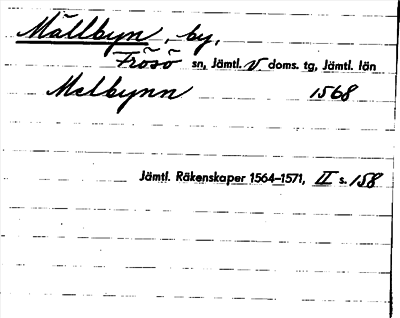 Mällbyn, by,
Frösö sn, Jämtl. v. doms. tg, Jämtl. län
Melbynn 1568
Jämtl. Räkenskaper 1564–1571, II s. 158